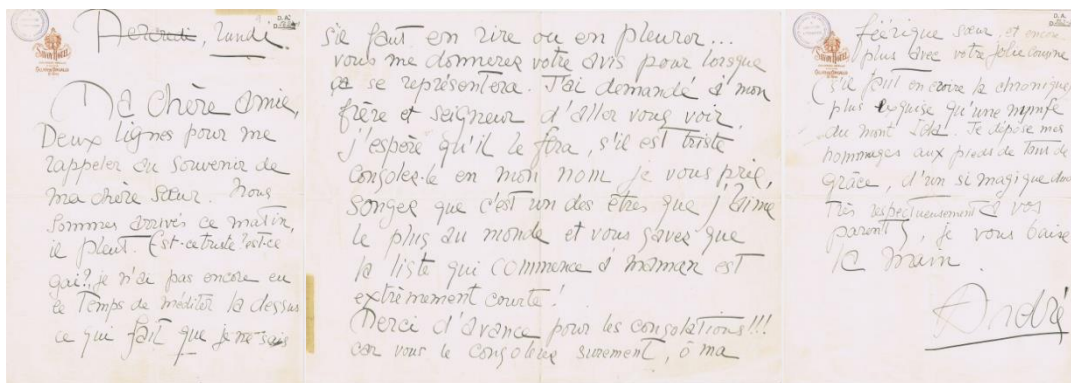 Mercredi, lundi.
Ma chère Amie,
Deux lignes pour me
rappeler au souvenir de
ma chère Sœur. Nous
sommes arrivés ce matin,
il pleut. Est-ce triste est-ce
gai? je n'ai pas encore eu
le temps de méditer la dessus
ce qui fait que je ne sais
s'il faut en rire ou en pleurer...
vous me donnerez votre avis pour lorsque
ça se représentera. J'ai demandé à mon
frère et seigneur d'aller vous voir
j'espère qu'il le fera, s'il est triste
consolez-le en mon nom je vous prie,
songez que c'est un des êtres que j'aime
le plus au monde et vous savez que
la liste qui commence à maman est
extrêmement courte!
Merci d'avance pour les consolations!!!
car vous le consolerez surement, ô ma
féérique sœur, et encore
plus avec votre jolie cousine
(s'il faut en croire la chronique)
plus exquise qu'une nymfe
du mont Ida. Je dépose mes
hommages aux pieds de tant de
grâce, d'un si magique duo
Très respectueusement à vos
parents, je vous baise
la main.
André